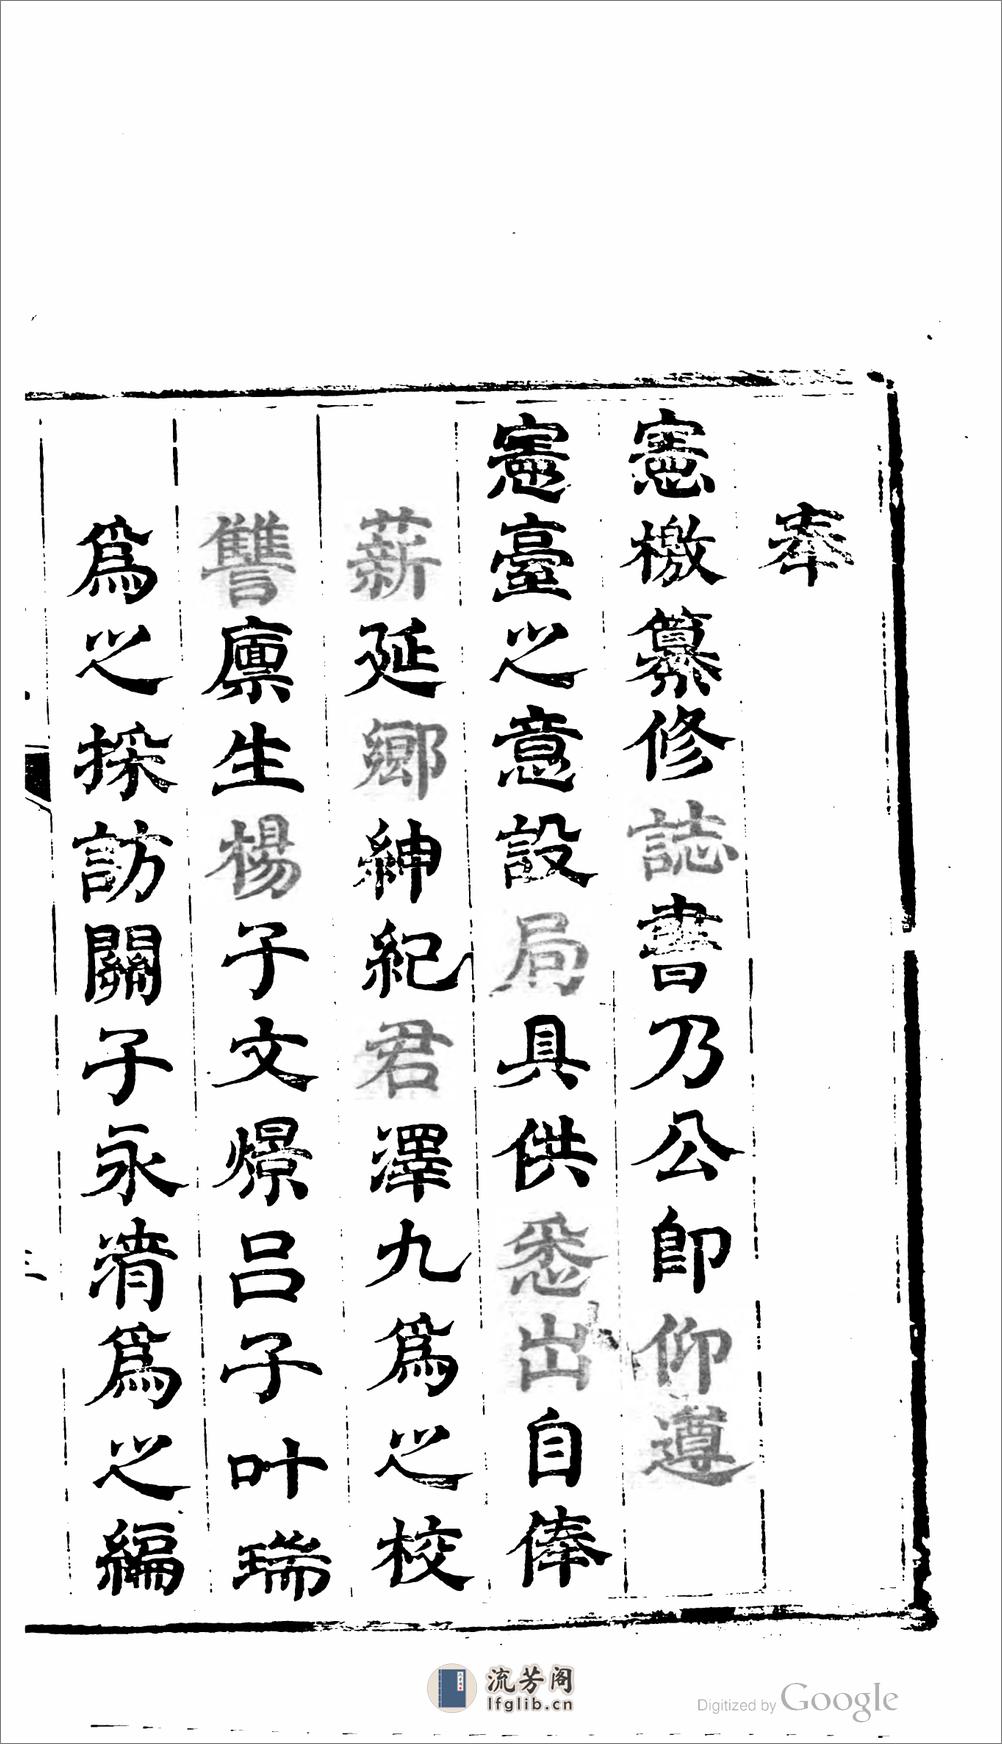 奉
憲檄纂修誌書乃公卽仰遵
憲臺之意設局具供悉出自俸
薪延鄉紳紀君澤九爲之校
讐廩生楊子文燝呂子叶瑞
爲之採訪關子永清爲之編
三
流芳阁
lfglib.cn
Digitized by Google